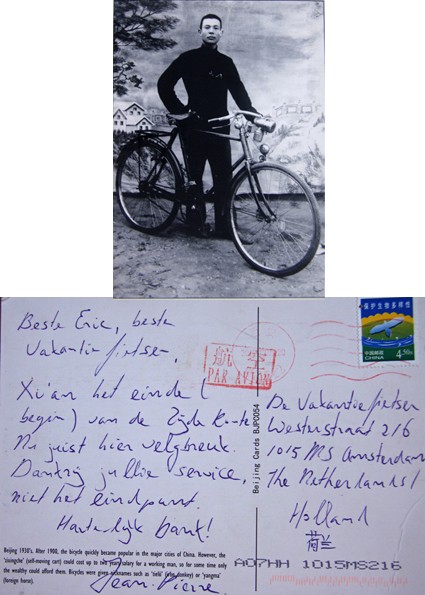 Beste Eric, beste
vakantiefietser,
Xi'an het einde (
begin) van de Zijde Route
Nu juist hier velgbreuk.
Dankzij jullie service,
niet het eindpunt.
Hartelijk dank!
Jean-Pierre
Beijing 1930's. After 1900, the bicycle quickly became popular in the major cities of China. However, the
(self-moving cart) could cost up to two years' salary for a working man, so for some time only
the wealthy could afford them. Bicycles were given nicknames such as (iron donkey) or 'yangma'
(foreign horse).
Beijing Cards BJPC054
航空
PAR AVION
保护生物多样性
中国邮政
CHINA
4.50元
De Vakantiefietser
Westerstraat 216
1015 MS Amsterdam
The Netherlands/
Holland
荷兰
A07HH 1015MS216